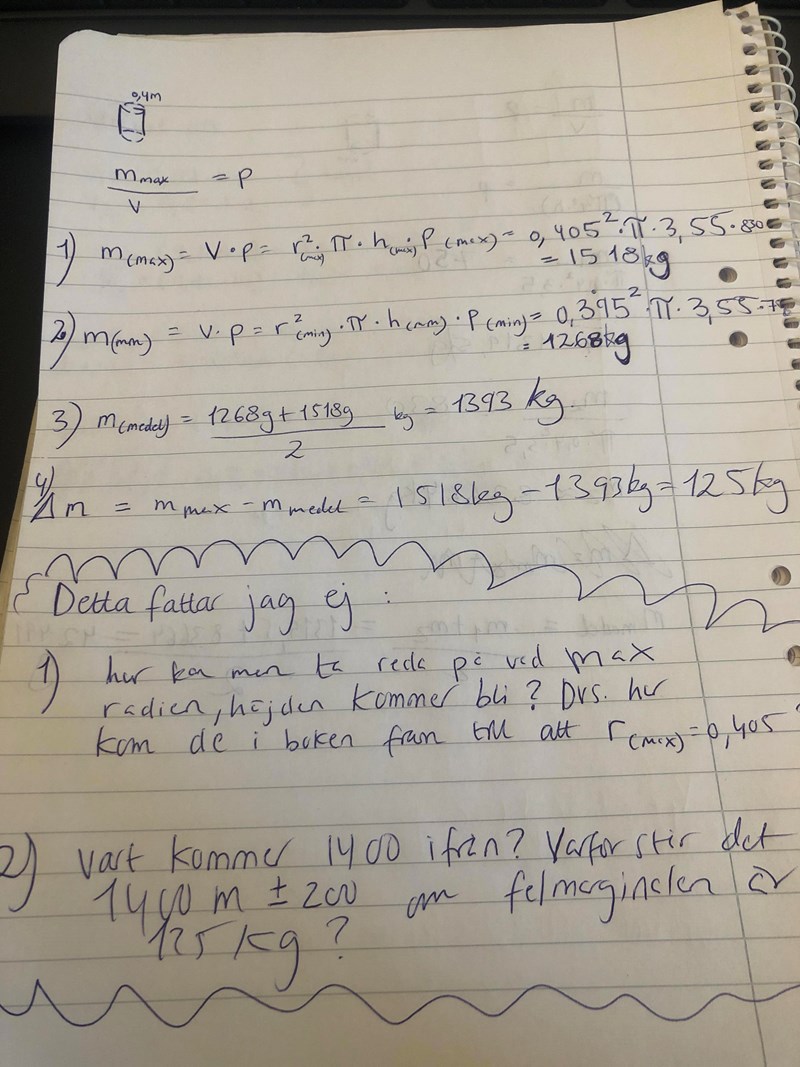 0,4m
m max / V = p
1) m(max) = V · p = r²(max) · π · h(max) · p(max) = 0,405² · π · 3,55 · 830
= 1518kg
2) m(min) = V · p = r²(min) · π · h(min) · p(min) = 0,395² · π · 3,55 ·
= 1268kg
3) m(medel) = 1268g + 1518g / 2 kg = 1393 kg.
4) Δm = m max - m medel = 1518kg - 1393kg = 125kg
Detta fattar jag ej :
1) hur kan man ta reda på vad max
radien, höjden kommer bli? Dvs. hur
kom de i boken fram till att r(max) = 0,405
2) Vart kommer 1400 ifrån? Varför står det
1400 m ± 200 om felmarginalen är
125kg?